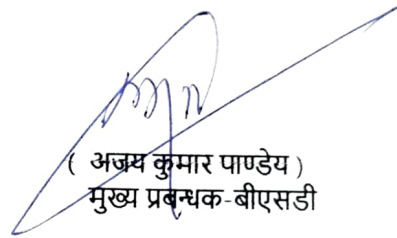 ( अजय कुमार पाण्डेय )
मुख्य प्रबन्धक-बीएसडी